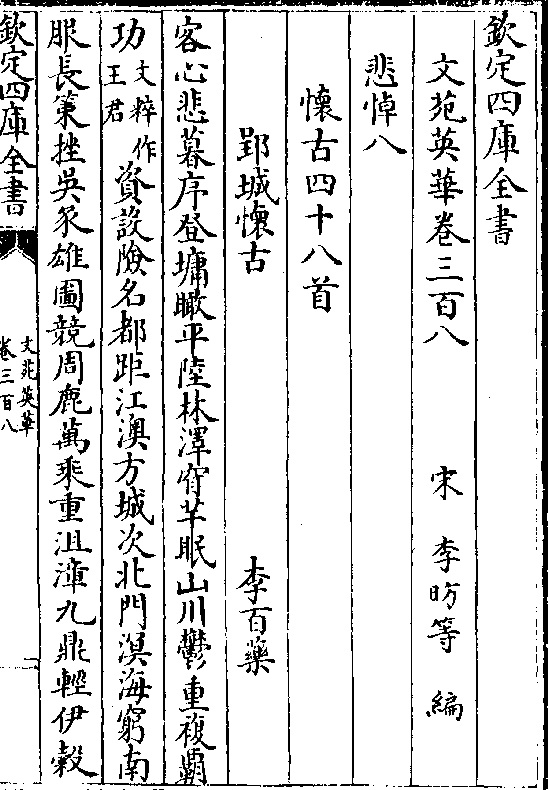 欽定四庫全書
文苑英華卷三百八 宋 李昉等 編
悲悼八
懷古四十八首
郢城懷古 李百藥
客心悲暮序登墉瞰平陸林澤窅芊眠山川鬱重複覇
功文粹作王君資設險名都距江澳方城次北門溟海窮南
服長策挫吳豕雄圖競周鹿萬乘重沮漳九鼎輕伊穀
欽定四庫全書
文苑英華
卷三百八